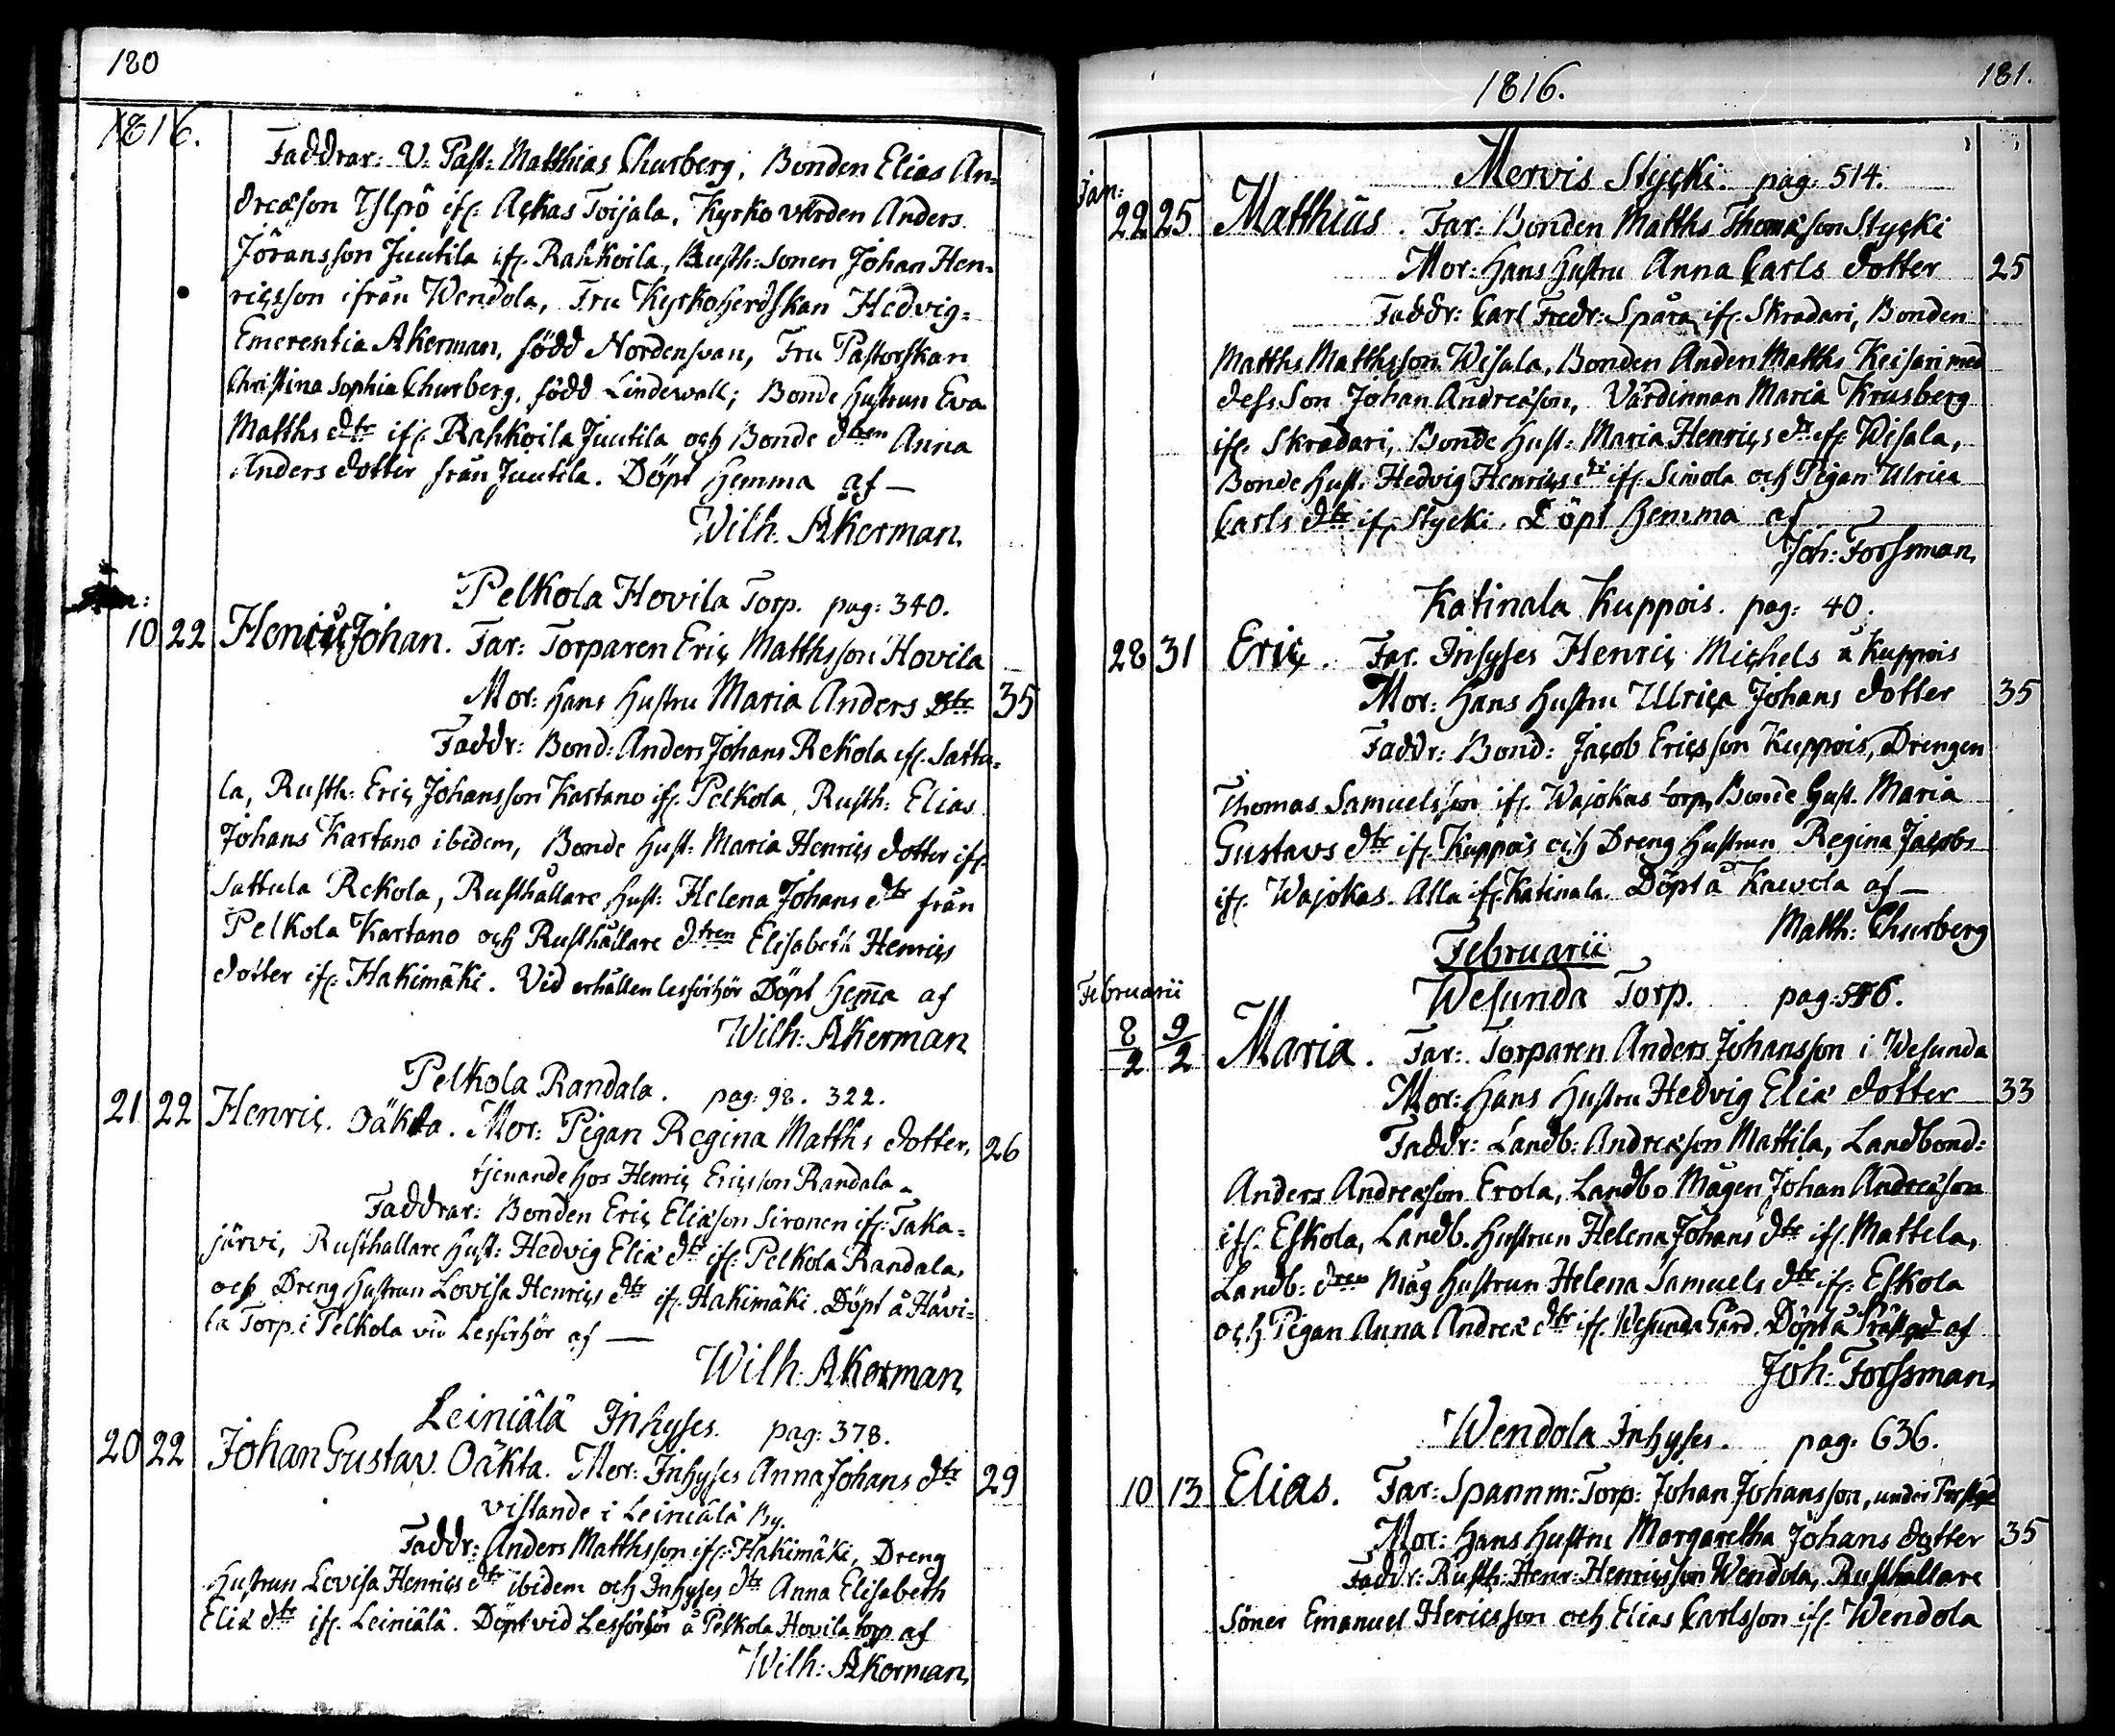 180
1816.
Faddrar: V: Past: Matthias Churberg, Bonden Elias An=
dreæson Yljpö ifr: Ackas Toijala, Kyrko värden Anders
Jöransson Juutila ifr. Rahkoila, Rusth: Sonen Johan Hen=
ricsson ifrån Wendola, Fru Kyrkoherdskan Hedvig=
Emerentia Åkerman, född Nordensvan, Fru Pastorskan
Christina Sophia Churberg, född Lindewall; Bonde Hustrun Eva
Matths dtr ifr. Rahkoila Juutila och Bonde dtren Anna
Anders dotter från Juutila. Döpt hemma af —
Wilh. Åkerman.
Pelkola Hovila Torp. pag: 340.
10 22 Henric Johan. Far: Torparen Eric Matthsson Hovila
Mor: Hans Hustru Maria Anders dtr 35
Faddr: Bond: Anders Johans Rekola ifr. Sattu=
la, Rusth: Eric Johansson Kartano ifr. Pelkola, Rusth: Elias
Johans Kartano ibidem, Bonde Hust: Maria Henrics dotter ifr.
Sattula Rekola, Rusthållare Hust: Helena Johans dtr från
Pelkola Kartano och Rusthållare dtren Elisabeth Henrics
dotter ifr. Hakimäki. Vid erhållen lesförhör Döpt hem̄a af
Wilh: Åkerman
Pelkola Randala. pag: 98. 322.
21 22 Henric. Oäkta. Mor: Pigan Regina Matths dotter, 26
tjenande hos Henric Ericsson Randala.
Faddrar: Bonden Eric Eliæson Sironen ifr: Taka=
järvi, Rusthållare Hust: Hedvig Eliæ dtr ifr. Pelkola Randala,
och Dreng Hustrun Lovisa Henrics dtr ifr. Hakimäki. Döpt å Håvi=
la Torp. i Pelkola vid Lesförhör af —
Wilh: Åkerman,
Leiniälä Inhyses. pag: 378.
20 22 Johan Gustav. Oäkta. Mor: Inhyses Anna Johans dtr 29
vistande i Leiniälä By.
Faddr: Anders Matthsson ifr: Hakimäki, Dreng
Hustrun Lovisa Henrics dtr ibidem och Inhyses dtr Anna Elisabeth
Eliæ dtr ifr. Leiniälä. Döpt vid Lesförhör å Pelkola Hovila torp af
Wilh: Åkerman,
1816.
181.
Mervis Stycki. pag: 514.
Jan:
22 25 Matthias. Far: Bonden Matths Thomæson Stycki
Mor: Hans Hustru Anna Carls dotter 25
Faddr: Carl Fredr: Spåra ifr. Skradari, Bonden
Matths Matthsson Wisala, Bonden Anders Matths Keisari med
dess Son Johan Andreæson, Värdinnan Maria Krusberg
ifr. Skradari, Bonde Hust: Maria Henrics dtr ifr. Wisala,
Bonde Hust: Hedvig Henrics dtr ifr. Simola och Pigan Ulrica
Carls dtr ifr. Stycki. Döpt hemma af
Joh: Forssman,
Katinala Kuppois. pag: 40.
28 31 Eric. Far: Inhyses Henric Michels å Kuppois
Mor: Hans Hustru Ulrica Johans dotter 35
Faddr: Bond: Jacob Ericsson Kuppois, Drengen
Thomas Samuelsson ifr. Wajokas torp, Bonde Hust. Maria
Gustavs dtr ifr. Kuppois och Dreng Hustrun Regina Jacobs
ifr. Wajokas. Alla ifr. Katinala. Döpt å Kawola af —
Matth: Churberg
Februarii
Februarii
Wesunda Torp. pag: 546.
8/2 9/2 Maria. Far: Torparen Anders Johansson i Wesunda
Mor: Hans Hustru Hedvig Eliæ dotter 33
Faddr: Landb: Andreæson Mattila, Landbond:
Anders Andreæson Erola, Landbo Mågen Johan Andreæson
ifr. Eskola, Landb. Hustrun Helena Johans dtr ifr. Mattela,
Landb: dren Måg Hustrun Helena Samuels dtr ifr. Eskola
och Pigan Anna Andreæ dtr ifr. Wesunda Gård. Döpt å Prästgd af
Joh: Forssman,
Wendola Inhyses. pag: 636.
10 13 Elias. Far: Spannm: Torp: Johan Johansson, under
Mor: Hans Hustru Margaretha Johans dotter 35
Faddr: Rusth: Henr: Henricsson Wendola, Rusthållare
Söner Emanuel Hericsson och Elias Carlsson ifr. Wendola